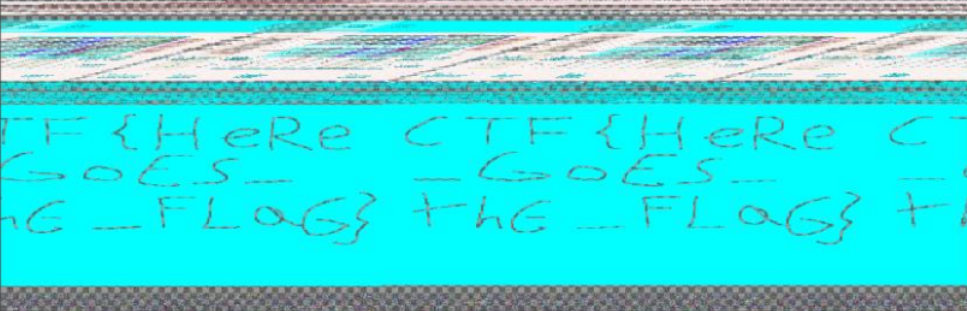 TF {HeRe CTF {HeRe C
GoES_ _GoES_ _
hE _FLaG} thE _FLaG} t